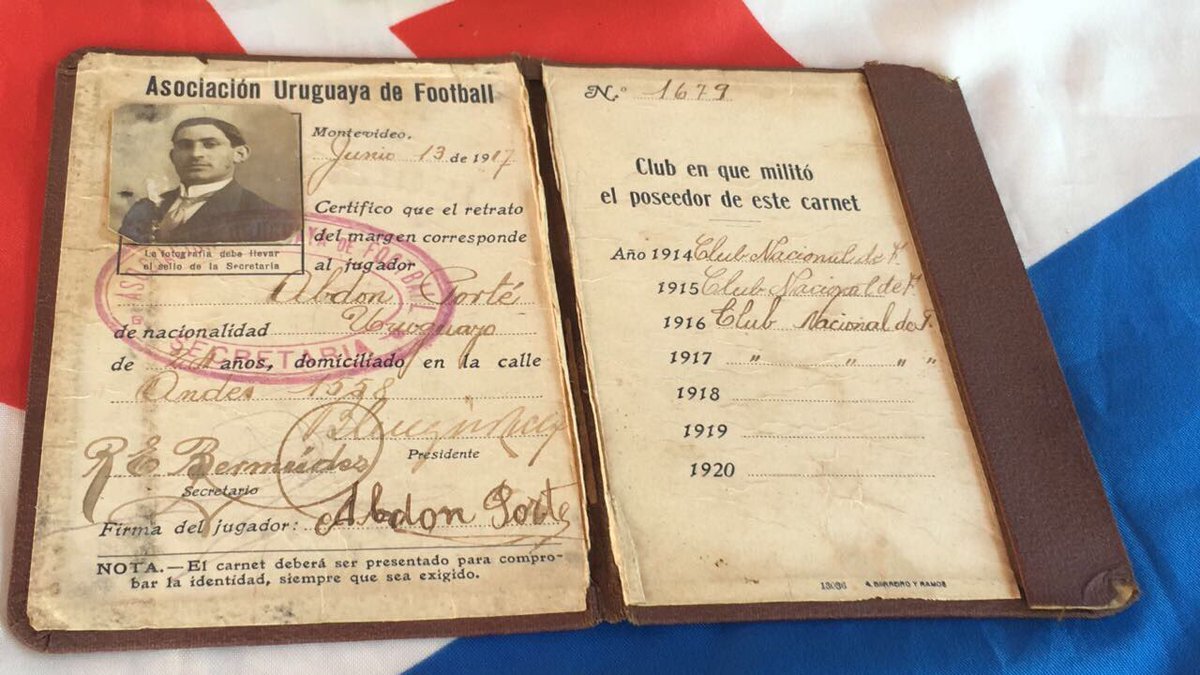 Asociación Uruguaya de Football
Montevideo,
Junio 13 de 1917
Certifico que el retrato
del margen corresponde
La fotografía debe llevar
el sello de la Secretaria
al jugador
Abdon Porté
de nacionalidad Uruguayo
de años, domiciliado en la calle
Andes 1558
Presidente
R E Bermúdes
Secretario
Firma del jugador: Abdon Porte
NOTA.—El carnet deberá ser presentado para compro-
bar la identidad, siempre que sea exigido.
SECRETARIA
N.º 1679
Club en que militó
el poseedor de este carnet
Año 1914 Club Nacional de F.
1915 Club Nacional de F.
1916 Club Nacional de F.
1917 " " " "
1918
1919
1920
A. BARREIRO Y RAMOS